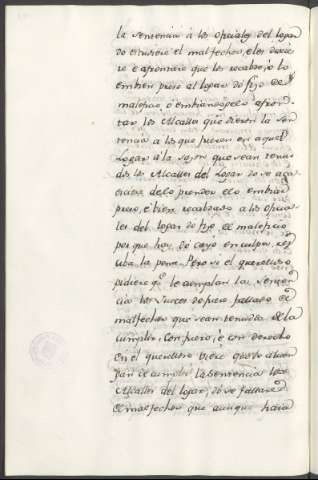 la sentencia à los oficiales del logar
do estuviere el malfechor, e les dixie
re è afrontare que les recabden, è lo
embien preso al logar do fizo el
maleficio, è embiandogelo afron-
tar los Alcalles que dieren la sen
tencia à los que fueren en aquel
Logar à la sazon que sean tenu
dos los Alcalles del Logar do se aca
eciere de lo prender, è lo embiar
preso, è bien recabdado a los oficia
les del logar do fizo el maleficio
por que hay, do cayo en culpa, resci
ba la pena. Pero si el querelloso
pidiere que le cumplan la senten
cia los Jueces do fuere fallado el
malfechor que sean tenudos de la
cumplir. Con fuero, è con derecho
en el querelloso pedir que lo
fagan è cumplir la sentencia los
Alcalles del logar, do se fallare
el malfechor que aunque haia